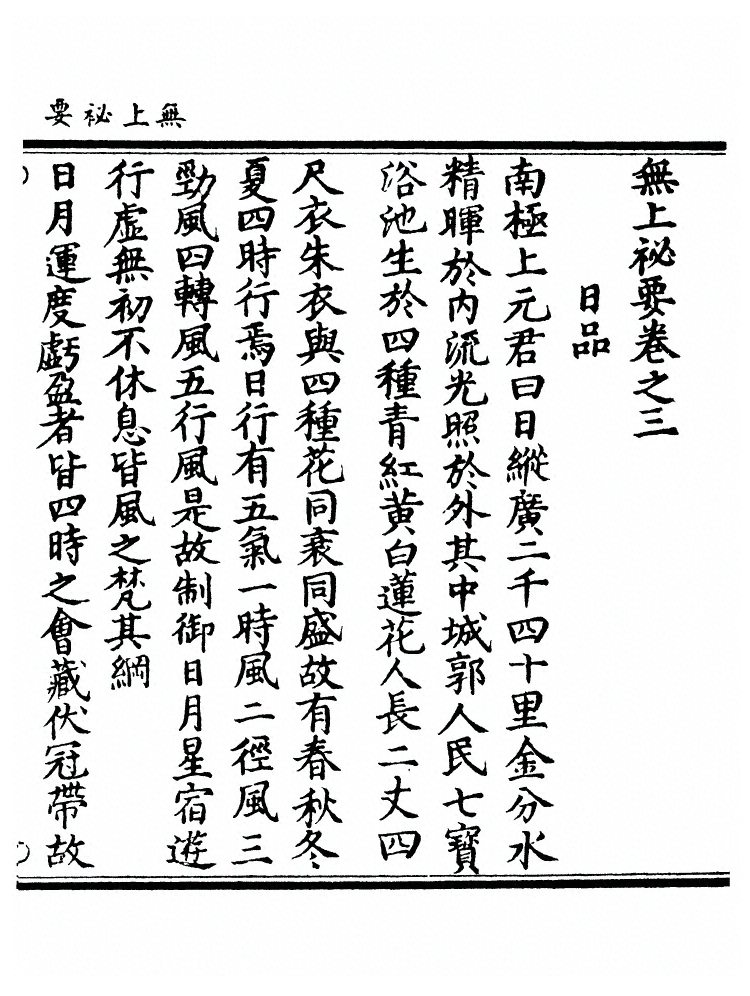 無上祕要
無上祕要卷之三
日品
南極上元君曰日縱廣二千四十里金分水
精暉於內流光照於外其中城郭人民七寶
浴池生於四種青紅黃白蓮花人長二丈四
尺衣朱衣與四種花同衰同盛故有春秋冬
夏四時行焉日行有五氣一時風二徑風三
勁風四轉風五行風是故制御日月星宿遊
行虛無初不休息皆風之梵其綱
日月運度虧盈者皆四時之會藏伏冠帶故